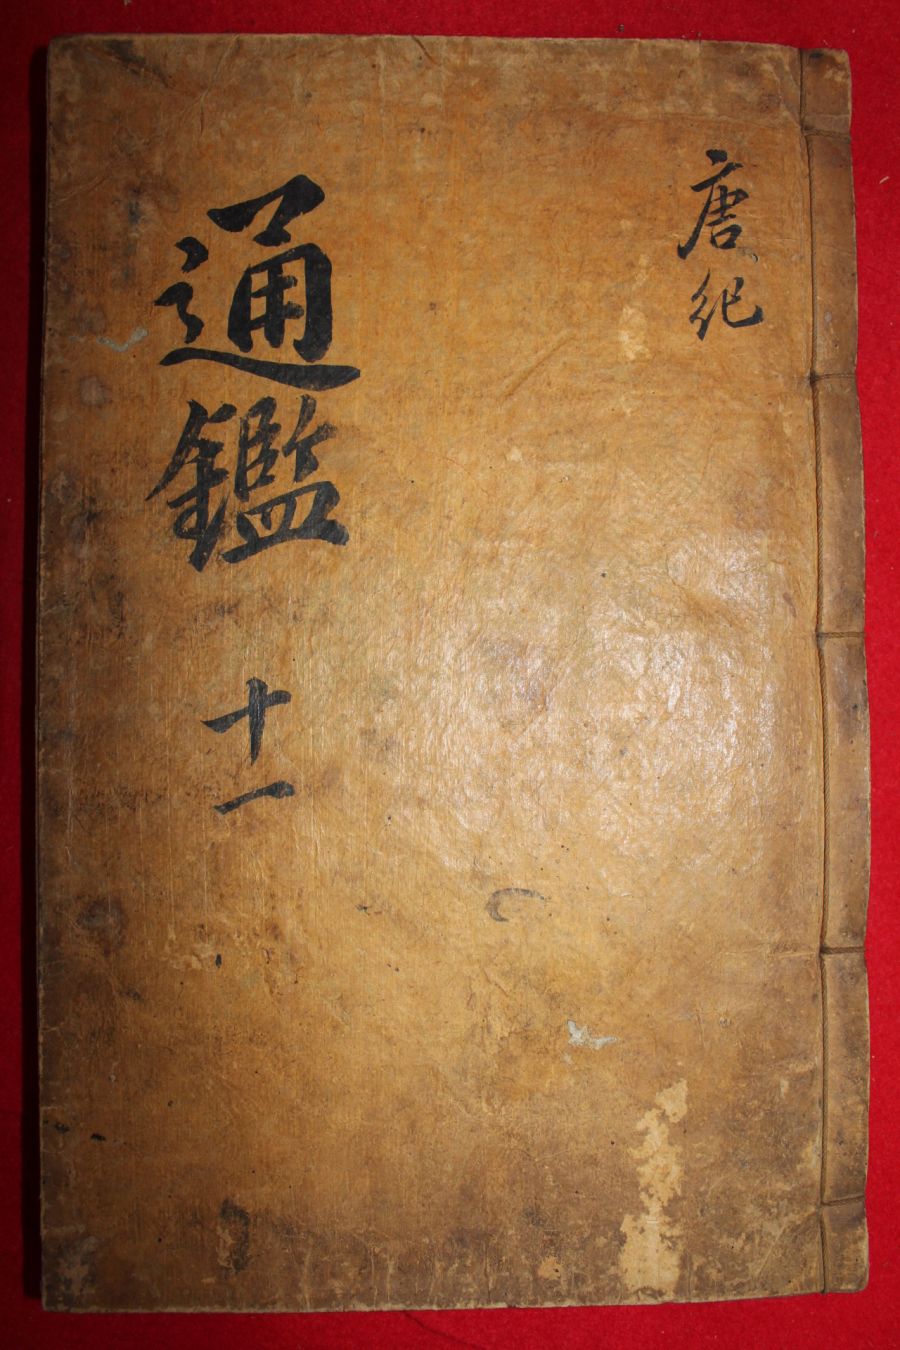 唐紀
通鑑 十一